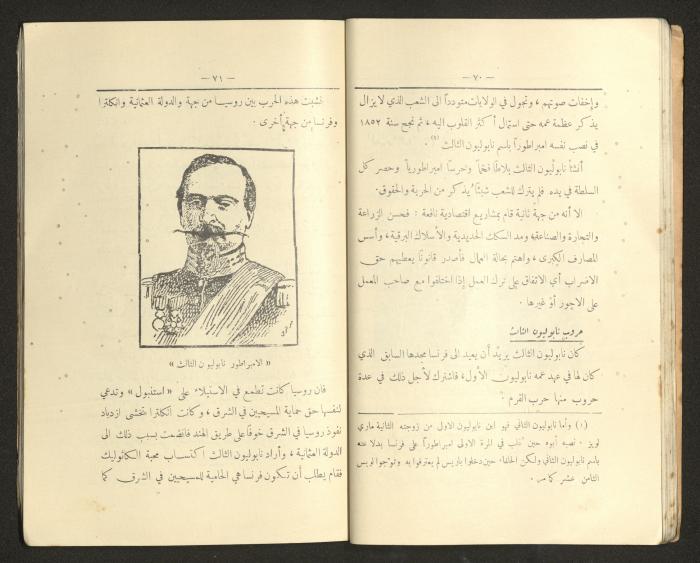 — ٧٠ —
وإخفات صوتهم ، وتجول في الولايات متودداً الى الشعب الذي لا يزال
يذكر عظمة عمه حتى استمال أكثر القلوب اليه ، ثم نجح سنة ١٨٥٢
في نصب نفسه امبراطوراً باسم نابوليون الثالث (١) .
أنشأ نابوليون الثالث بلاطاً فخماً وحرسا امبراطورياً وحصر كل
السلطة في يده فلم يترك للشعب شيئاً يذكر من الحرية والحقوق .
الا أنه من جهة ثانية قام بمشاريع اقتصادية نافعة : فحسن الزراعة
والتجارة والصناعة ومد السكك الحديدية والأسلاك البرقية ، وأسس
المصارف الكبرى ، واهتم بحالة العمال فأصدر قانونا يعطيهم حق
الاضراب أي الاتفاق على ترك العمل إذا اختلفوا مع صاحب المعمل
على الاجور أو غيرها .
حروب نابوليون الثالث
كان نابوليون الثالث يريد أن يعيد الى فرنسا مجدها السابق الذي
كان لها في عهد عمه نابوليون الأول ، فاشترك لأجل ذلك في عدة
حروب منها حرب القرم :
(١) وأما نابوليون الثاني فهو ابن نابوليون الاول من زوجته الثانية ماري
لويز . نصبه أبوه حين تغلب في المرة الاولى امبراطوراً على فرنسا بدلا عنه
باسم نابوليون الثاني ولكن الحلفاء حين دخلوا باريس لم يعترفوا به وتوجوا لويس
الثامن عشر كما مر .
— ٧١ —
نشبت هذه الحرب بين روسيا من جهة والدولة العثمانية وانكلترا
وفرنسا من جهة أخرى .
« الامبراطور نابوليون الثالث »
فان روسيا كانت تطمع في الاستيلاء على « استنبول » وتدعي
لنفسها حق حماية المسيحيين في الشرق ، وكانت انكلترا تخشى ازدياد
نفوذ روسيا في الشرق خوفا على طريق الهند فانضمت بسبب ذلك الى
الدولة العثمانية ، وأراد نابوليون الثالث اكتساب محبة الكاثوليك
فقام يطلب أن تكون فرنسا هي الحامية للمسيحيين في الشرق كما